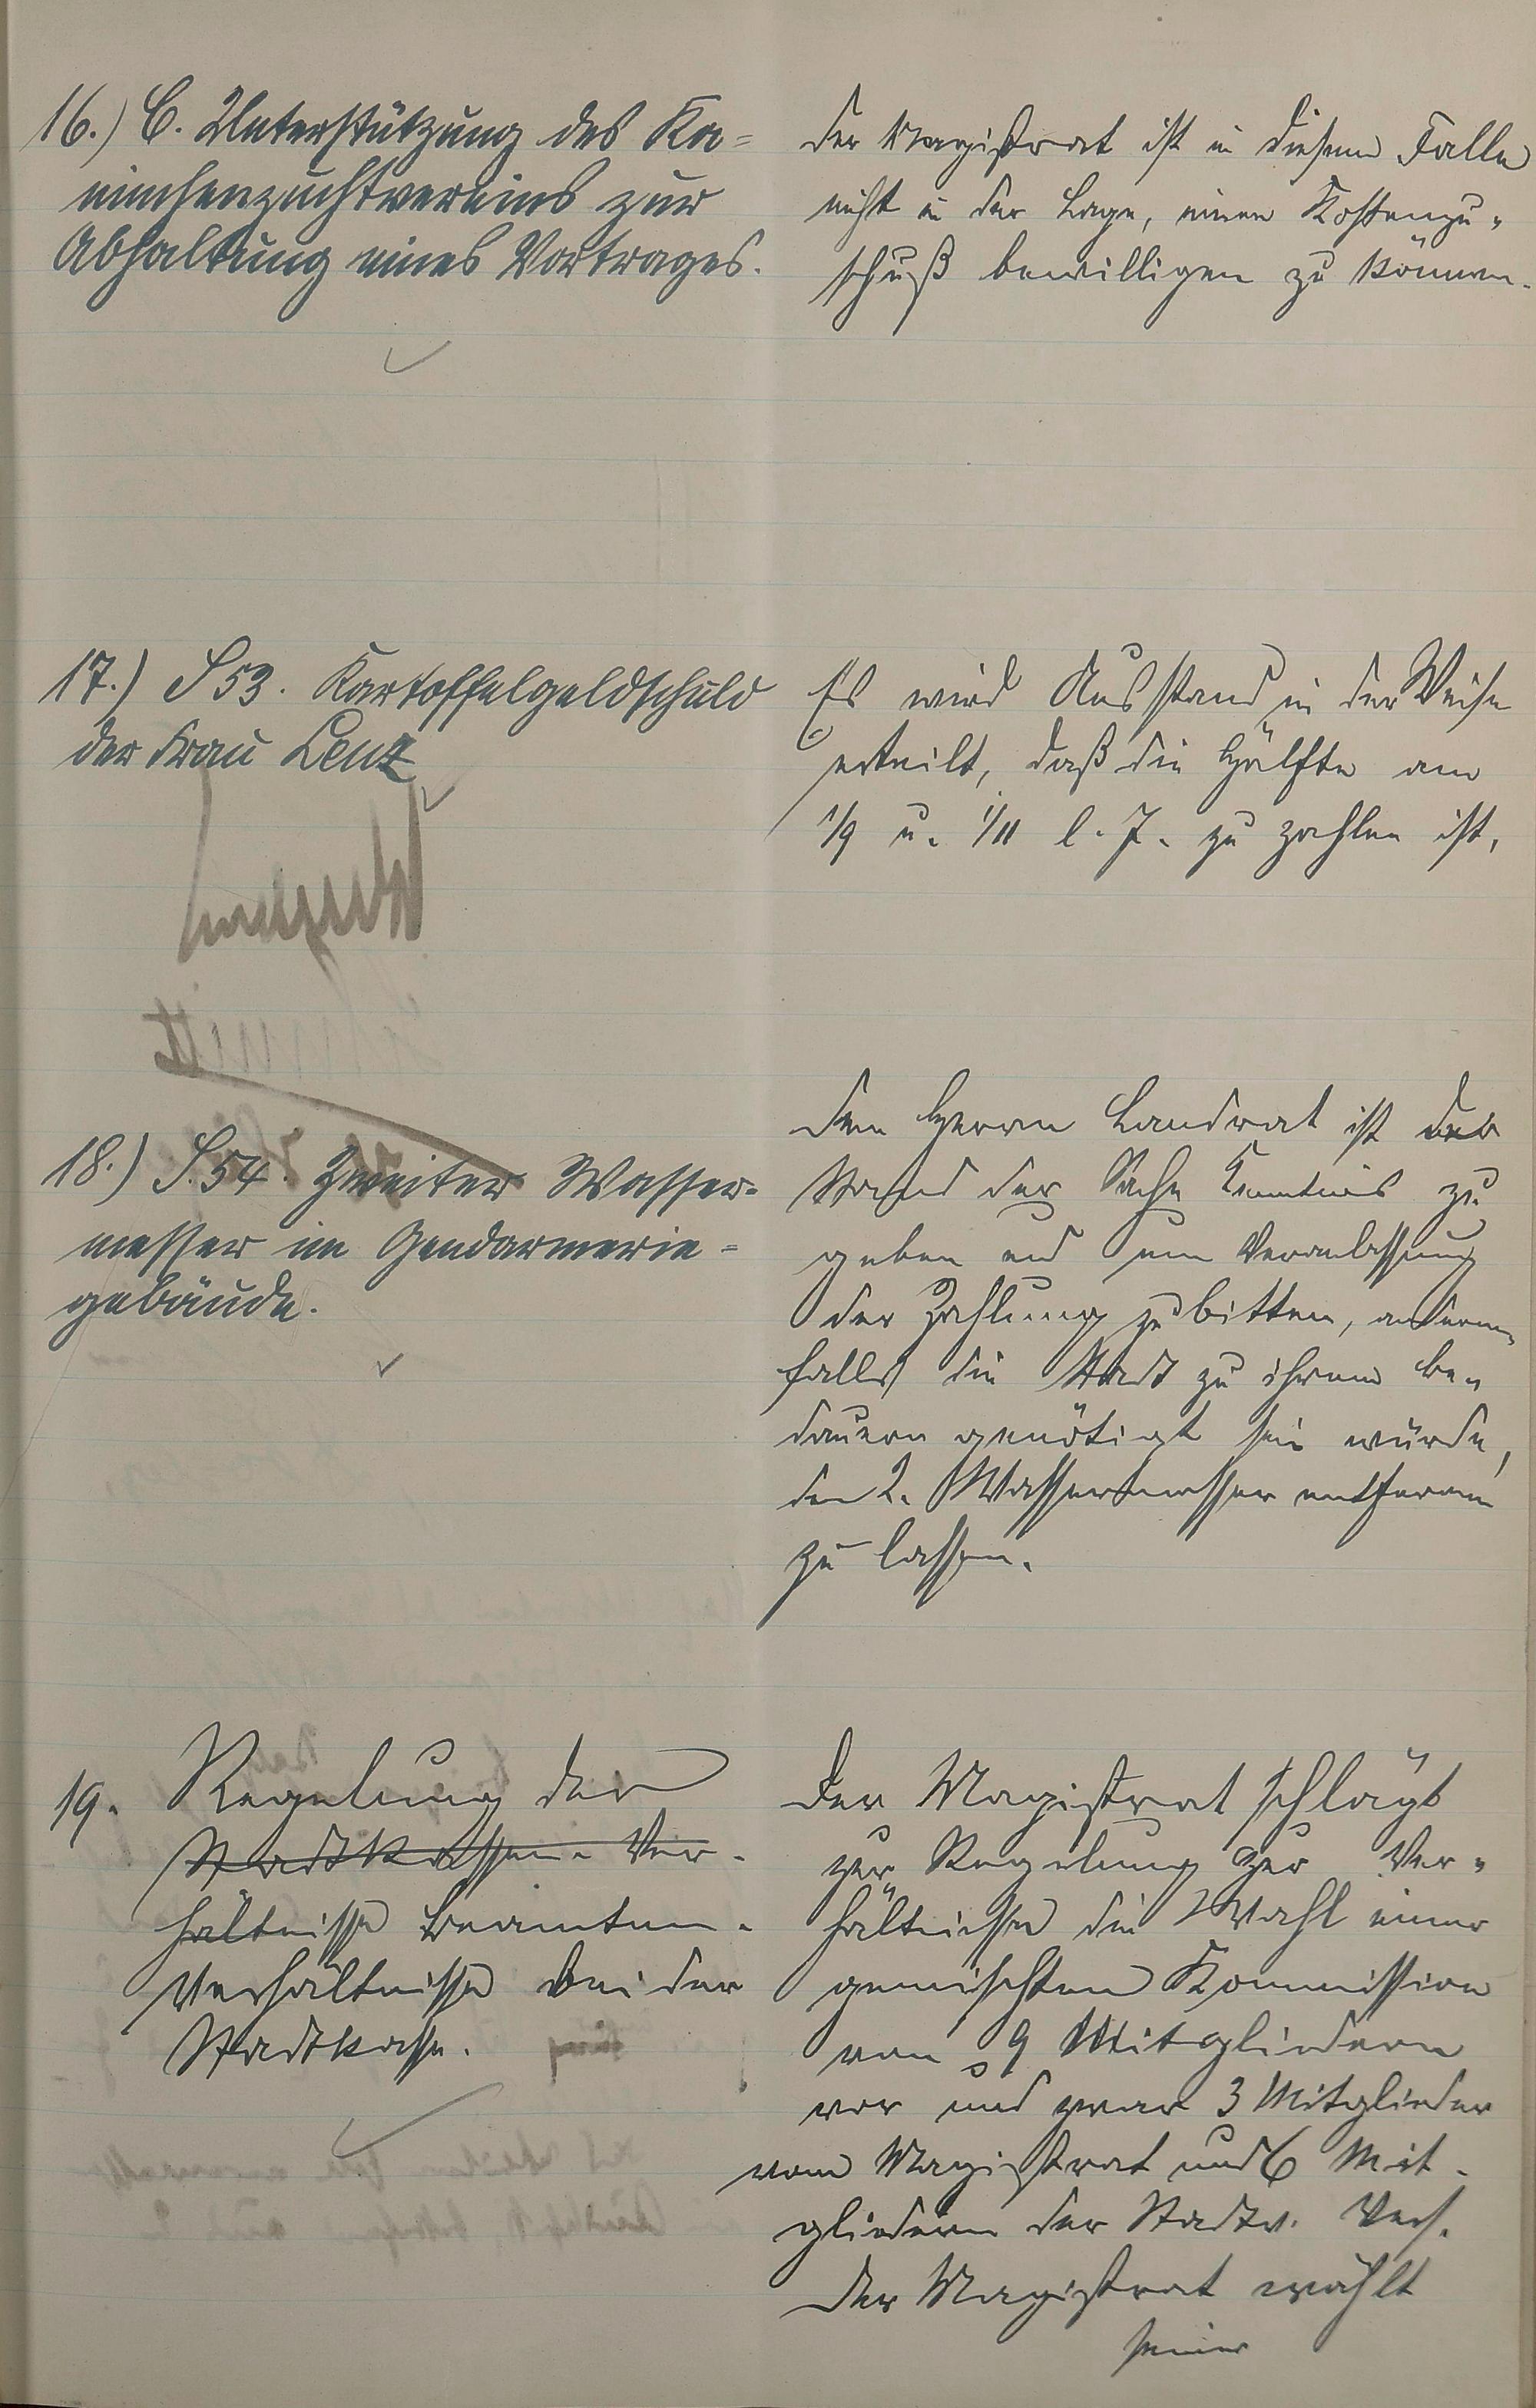 16.) C. Unterstützung des Ka-
ninchenzuchtvereins zur
Abhaltung eines Vortrages.
Der Magistrat ist in diesem Falle
nicht in der Lage, einen Kostenzu-
schuß bewilligen zu können.
17.) S 53. Kartoffelgeldschuld
der Frau Lenz
Es wird Ausstand in der Weise
erteilt, daß die Hälfte am
1/9 u. 1/11 l. J. zu zahlen ist.
18.) S. 54. Zweiter Wasser-
messer im Gendarmerie-
gebäude.
Dem Herrn Landrat ist der
Stand der Sache Kenntnis zu
geben und um Veranlassung
der Zahlung zu bitten, andern-
falls die Stadt zu ihrem Be-
dauern genötigt sein würde,
den 2. Wassermesser entfernen
zu lassen.
19. Regelung der
Stadtkassen-Ver-
hältnisse Beamten-
Verhältnisse bei der
Stadtkasse.
Der Magistrat schlägt
zur Regelung der Ver-
hältnisse die Wahl einer
gemischten Kommission
von 9 Mitgliedern
vor und zwar 3 Mitglieder
vom Magistrat und 6 Mit-
gliedern der Stadtv. Vers.
Der Magistrat wählt
seiner